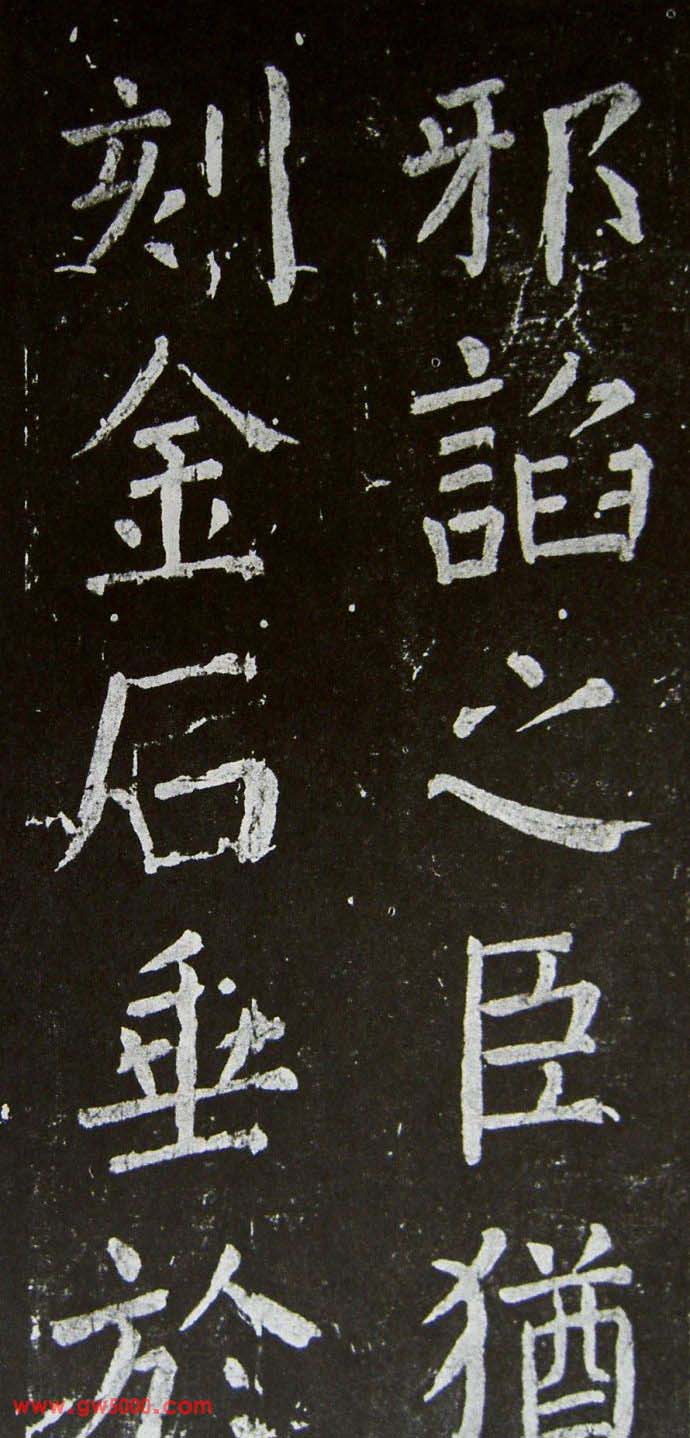 邪諂之臣猶
刻金石垂於
www.gw5000.com